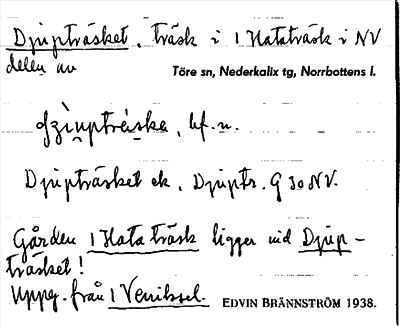 Djupträsket, träsk i 1 Hataträsk i NV
delen av
Töre sn, Nederkalix tg, Norrbottens l.
bf. n.
Djupträsket ek. Djuptr. G 30 NV.
Gården 1 Hataträsk ligger vid Djup-
träsket!
Uppg. från 1
EDVIN BRÄNNSTRÖM 1938.